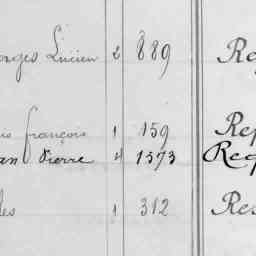 orges Lucien 2 889 Re
is françois 1 159 Rep
an Pierre 4 1573 Req
les 1 312 Res